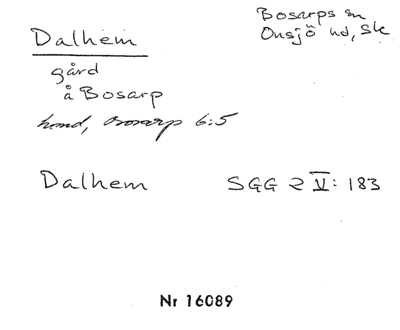 Dalhem
Bosarps sn
Onsjö hd, Sk
gård
å Bosarp
hmd, Bosarp 6:5
Dalhem
SGG 2 V: 183
Nr 16089